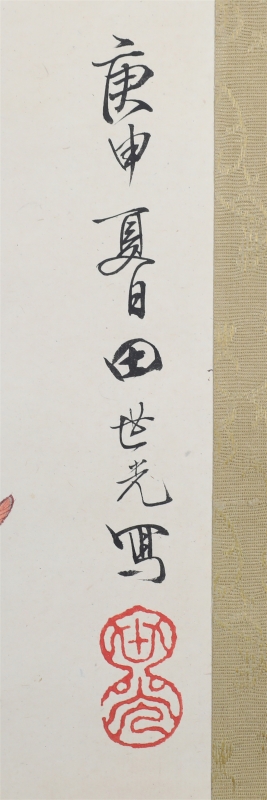 庚申夏日田世光寫
世光